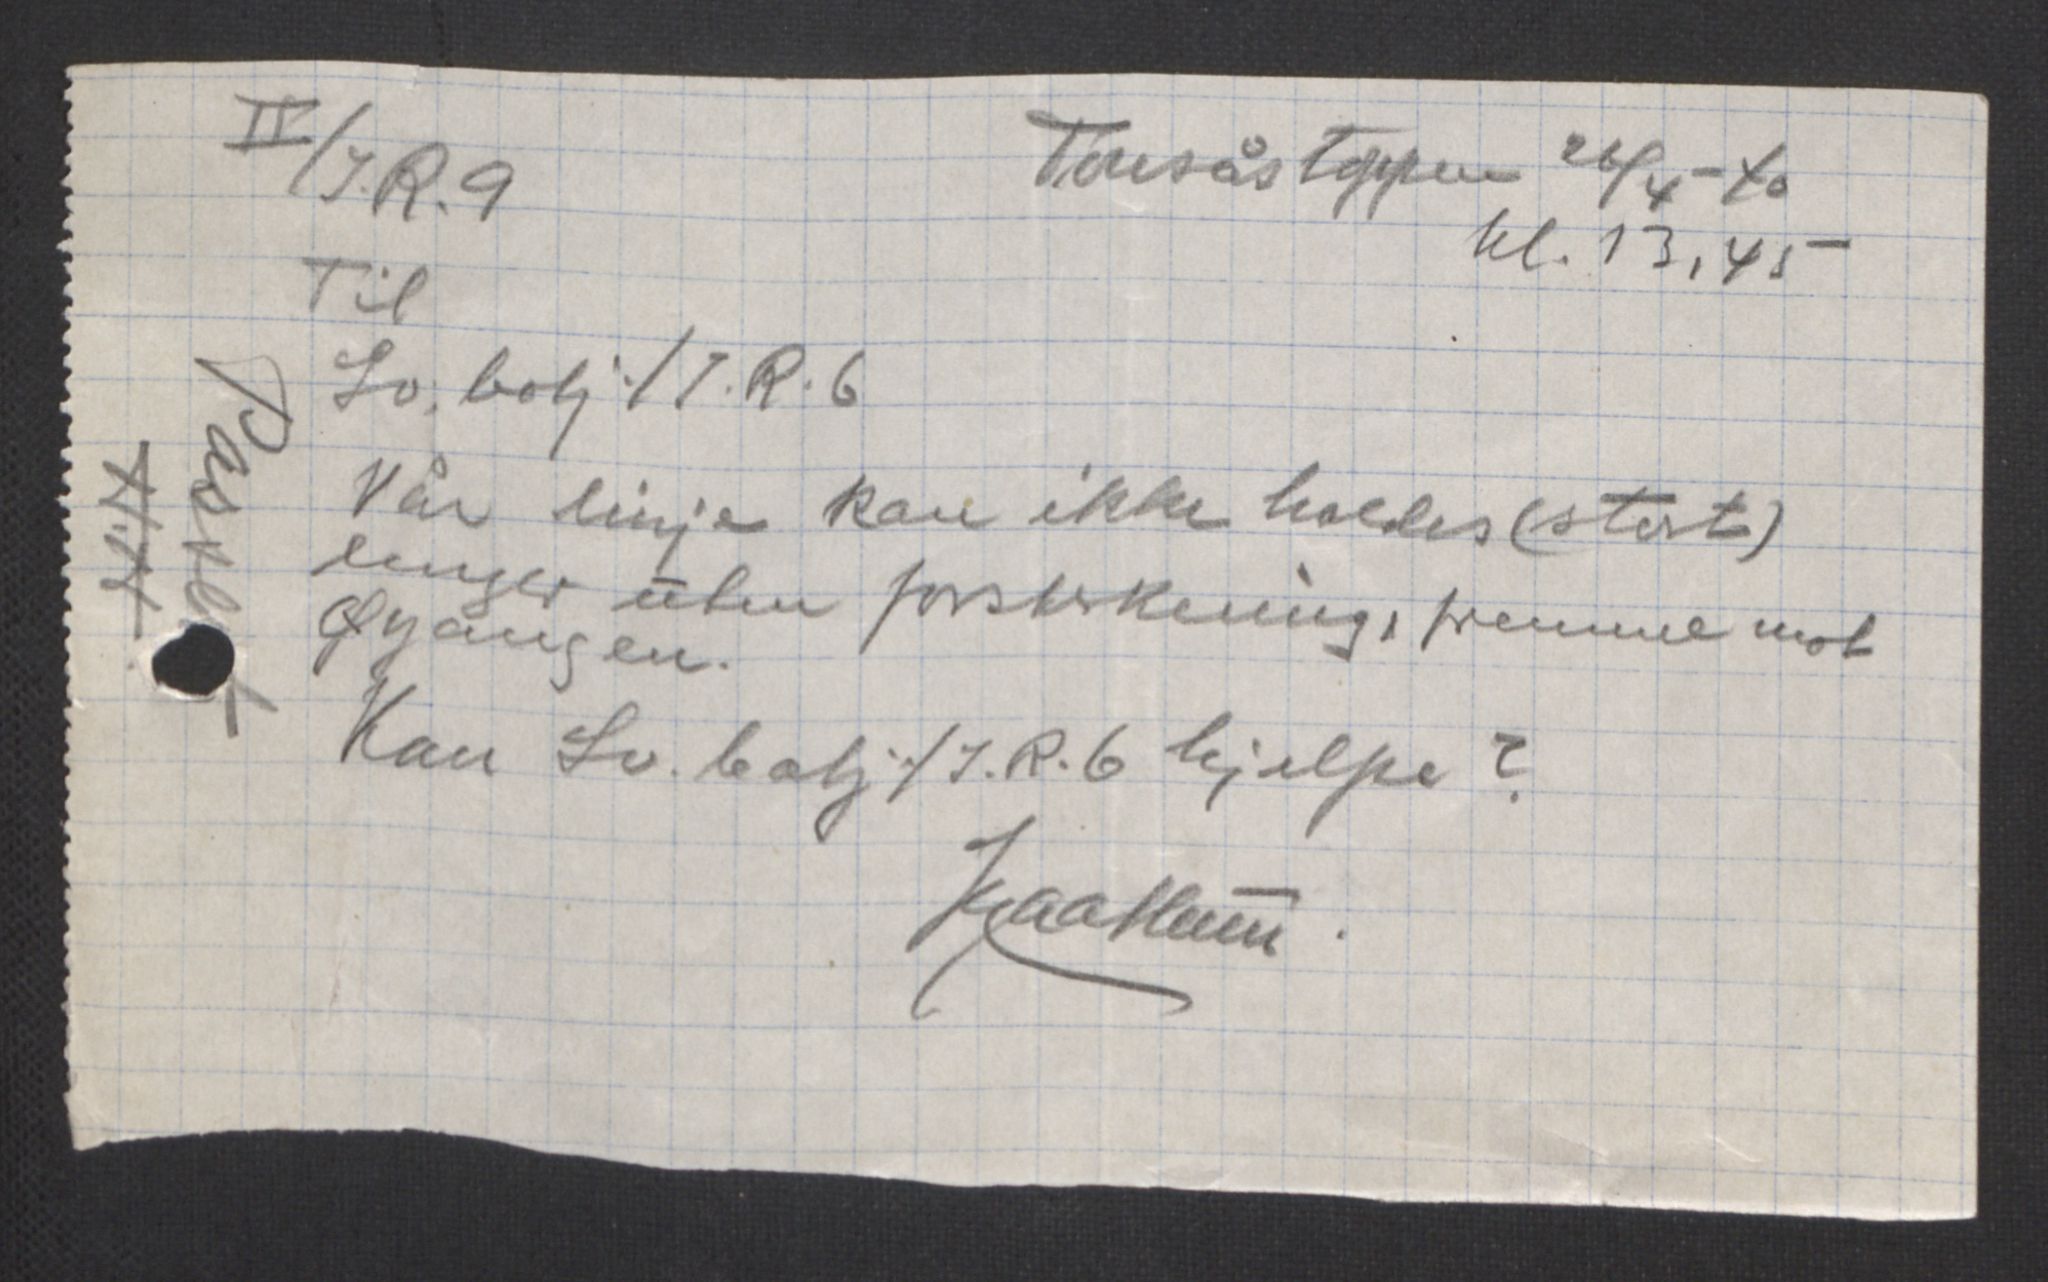 II/I.R.9
Tonsåstoppen 26/4-40
kl. 13,45
Til
Lv. batj./I.R.6
Vår linje kan ikke holdes (stort)
lenger uten forsterkning, fremme mot
Gyangen.
Kan Lv. batj./I.R.6 hjelpe?
Passert
H.H.